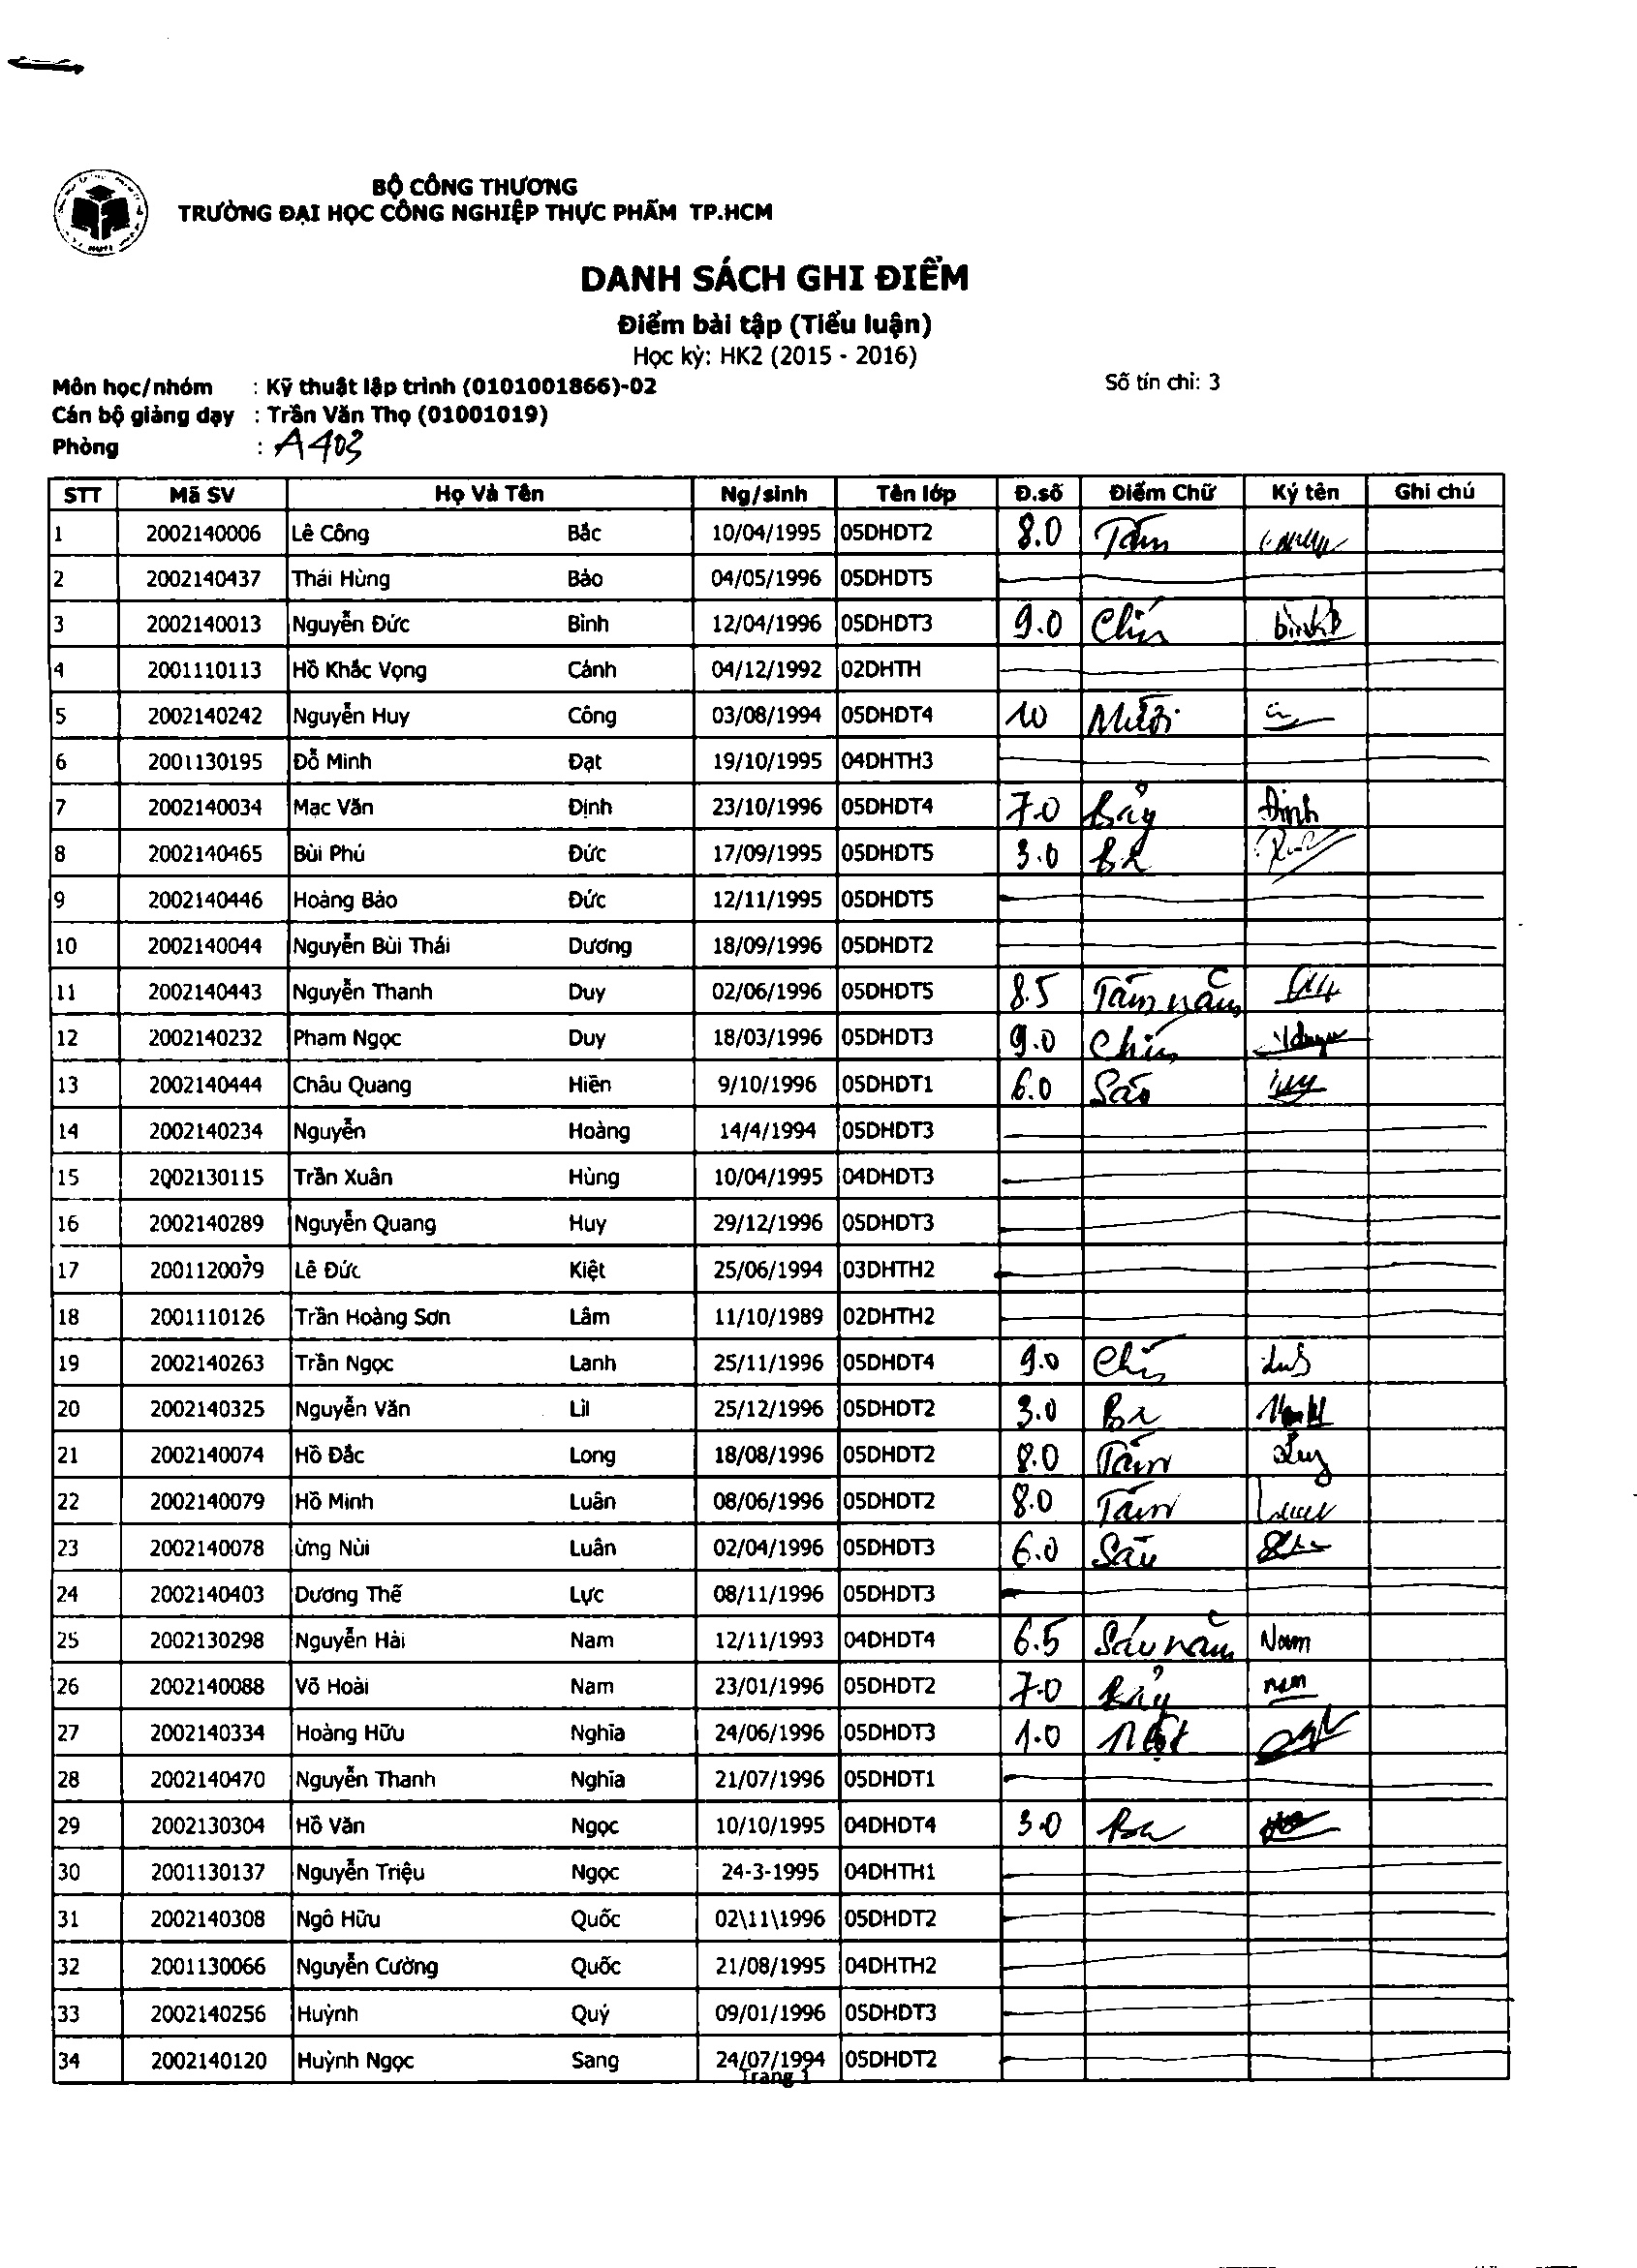 BỘ CÔNG THƯƠNG
TRƯỜNG ĐẠI HỌC CÔNG NGHIỆP THỰC PHẨM TP.HCM
DANH SÁCH GHI ĐIỂM
Điểm bài tập (Tiểu luận)
Học kỳ: HK2 (2015 - 2016)
Môn học/nhóm : Kỹ thuật lập trình (0101001866)-02 Số tín chỉ: 3
Cán bộ giảng dạy : Trần Văn Thọ (01001019)
Phòng : A403
STT Mã SV Họ Và Tên Ng/sinh Tên lớp Đ.số Điểm Chữ Ký tên Ghi chú
1 2002140006 Lê Công Bắc 10/04/1995 05DHDT2 8.0 Tám
2 2002140437 Thái Hùng Bảo 04/05/1996 05DHDT5
3 2002140013 Nguyễn Đức Bình 12/04/1996 05DHDT3 9.0 Chín bình
4 2001110113 Hồ Khắc Vọng Cảnh 04/12/1992 02DHTH
5 2002140242 Nguyễn Huy Công 03/08/1994 05DHDT4 10 Mười
6 2001130195 Đỗ Minh Đạt 19/10/1995 04DHTH3
7 2002140034 Mạc Văn Định 23/10/1996 05DHDT4 7.0 Bảy Định
8 2002140465 Bùi Phú Đức 17/09/1995 05DHDT5 3.0 Ba
9 2002140446 Hoàng Bảo Đức 12/11/1995 05DHDT5
10 2002140044 Nguyễn Bùi Thái Dương 18/09/1996 05DHDT2
11 2002140443 Nguyễn Thanh Duy 02/06/1996 05DHDT5 8.5 Tám năm
12 2002140232 Phạm Ngọc Duy 18/03/1996 05DHDT3 9.0 Chín
13 2002140444 Châu Quang Hiền 9/10/1996 05DHDT1 6.0 Sáu
14 2002140234 Nguyễn Hoàng 14/4/1994 05DHDT3
15 2002130115 Trần Xuân Hùng 10/04/1995 04DHDT3
16 2002140289 Nguyễn Quang Huy 29/12/1996 05DHDT3
17 2001120079 Lê Đức Kiệt 25/06/1994 03DHTH2
18 2001110126 Trần Hoàng Sơn Lâm 11/10/1989 02DHTH2
19 2002140263 Trần Ngọc Lanh 25/11/1996 05DHDT4 9.0 Chín
20 2002140325 Nguyễn Văn Lil 25/12/1996 05DHDT2 3.0 Ba
21 2002140074 Hồ Đắc Long 18/08/1996 05DHDT2 8.0 Tám
22 2002140079 Hồ Minh Luân 08/06/1996 05DHDT2 8.0 Tám
23 2002140078 ừng Nùi Luân 02/04/1996 05DHDT3 6.0 Sáu
24 2002140403 Dương Thế Lực 08/11/1996 05DHDT3
25 2002130298 Nguyễn Hải Nam 12/11/1993 04DHDT4 6.5 Sáu năm Nam
26 2002140088 Võ Hoài Nam 23/01/1996 05DHDT2 7.0 Bảy nam
27 2002140334 Hoàng Hữu Nghĩa 24/06/1996 05DHDT3 1.0 Một
28 2002140470 Nguyễn Thanh Nghĩa 21/07/1996 05DHDT1
29 2002130304 Hồ Văn Ngọc 10/10/1995 04DHDT4 3.0 Ba
30 2001130137 Nguyễn Triệu Ngọc 24-3-1995 04DHTH1
31 2002140308 Ngô Hữu Quốc 02\11\1996 05DHDT2
32 2001130066 Nguyễn Cường Quốc 21/08/1995 04DHTH2
33 2002140256 Huỳnh Quý 09/01/1996 05DHDT3
34 2002140120 Huỳnh Ngọc Sang 24/07/1994 05DHDT2
Trang 1